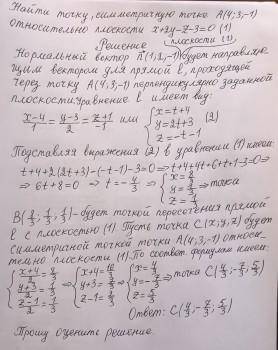 Найти точку, симметричную точке A(4;3;-1)
относительно плоскости x+2y-z-3=0 (1)
Решение
плоскости (1)
Нормальный вектор n̄(1,2,-1) будет направляю-
щим вектором для прямой ℓ, проходящей
через точку A(4,3;-1) перпендикулярно заданной
плоскости. Уравнение ℓ имеет вид:
x-4/1 = y-3/2 = z+1/-1 или { x=t+4 y=2t+3 z=-t-1 (2)
Подставляя выражения (2) в уравнении (1) имеем:
t+4+2(2t+3)-(-t-1)-3=0 ⇒ t+4+4t+6+t+1-3=0 ⇒
⇒ 6t+8=0 ⇒ t=-4/3 ⇒ { x=8/3 y=1/3 z=1/3 ⇒ точка
B(8/3; 1/3; 1/3) - будет точкой пересечения прямой
ℓ с плоскостью (1). Пусть точка C(x; y; z) будет
симметричной точкой точки A(4,3,-1) относи-
тельно плоскости (1). По соответ. формулам имеем:
{ x+4/2=8/3 y+3/2=1/3 z-1/2=1/3 ⇒ { x+4=16/3 y+3=2/3 z-1=2/3 ⇒ { x=4/3 y=-7/3 z=5/3 ⇒ точка C(4/3; -7/3; 5/3)
Ответ: C(4/3; -7/3; 5/3)
Прошу оцените решение.